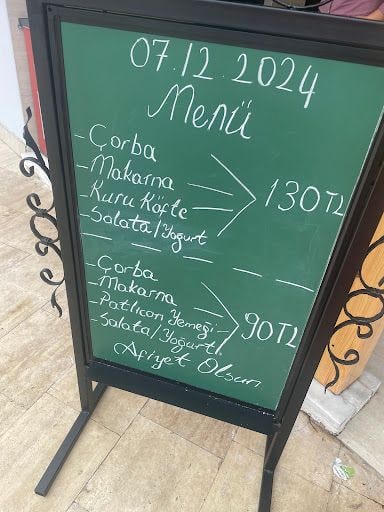 07.12.2024
Menü
- Çorba
- Makarna
- Kuru Köfte
- Salata/Yoğurt
130TL
- Çorba
- Makarna
- Patlıcan Yemeği
- Salata/Yoğurt
90TL
Afiyet Olsun